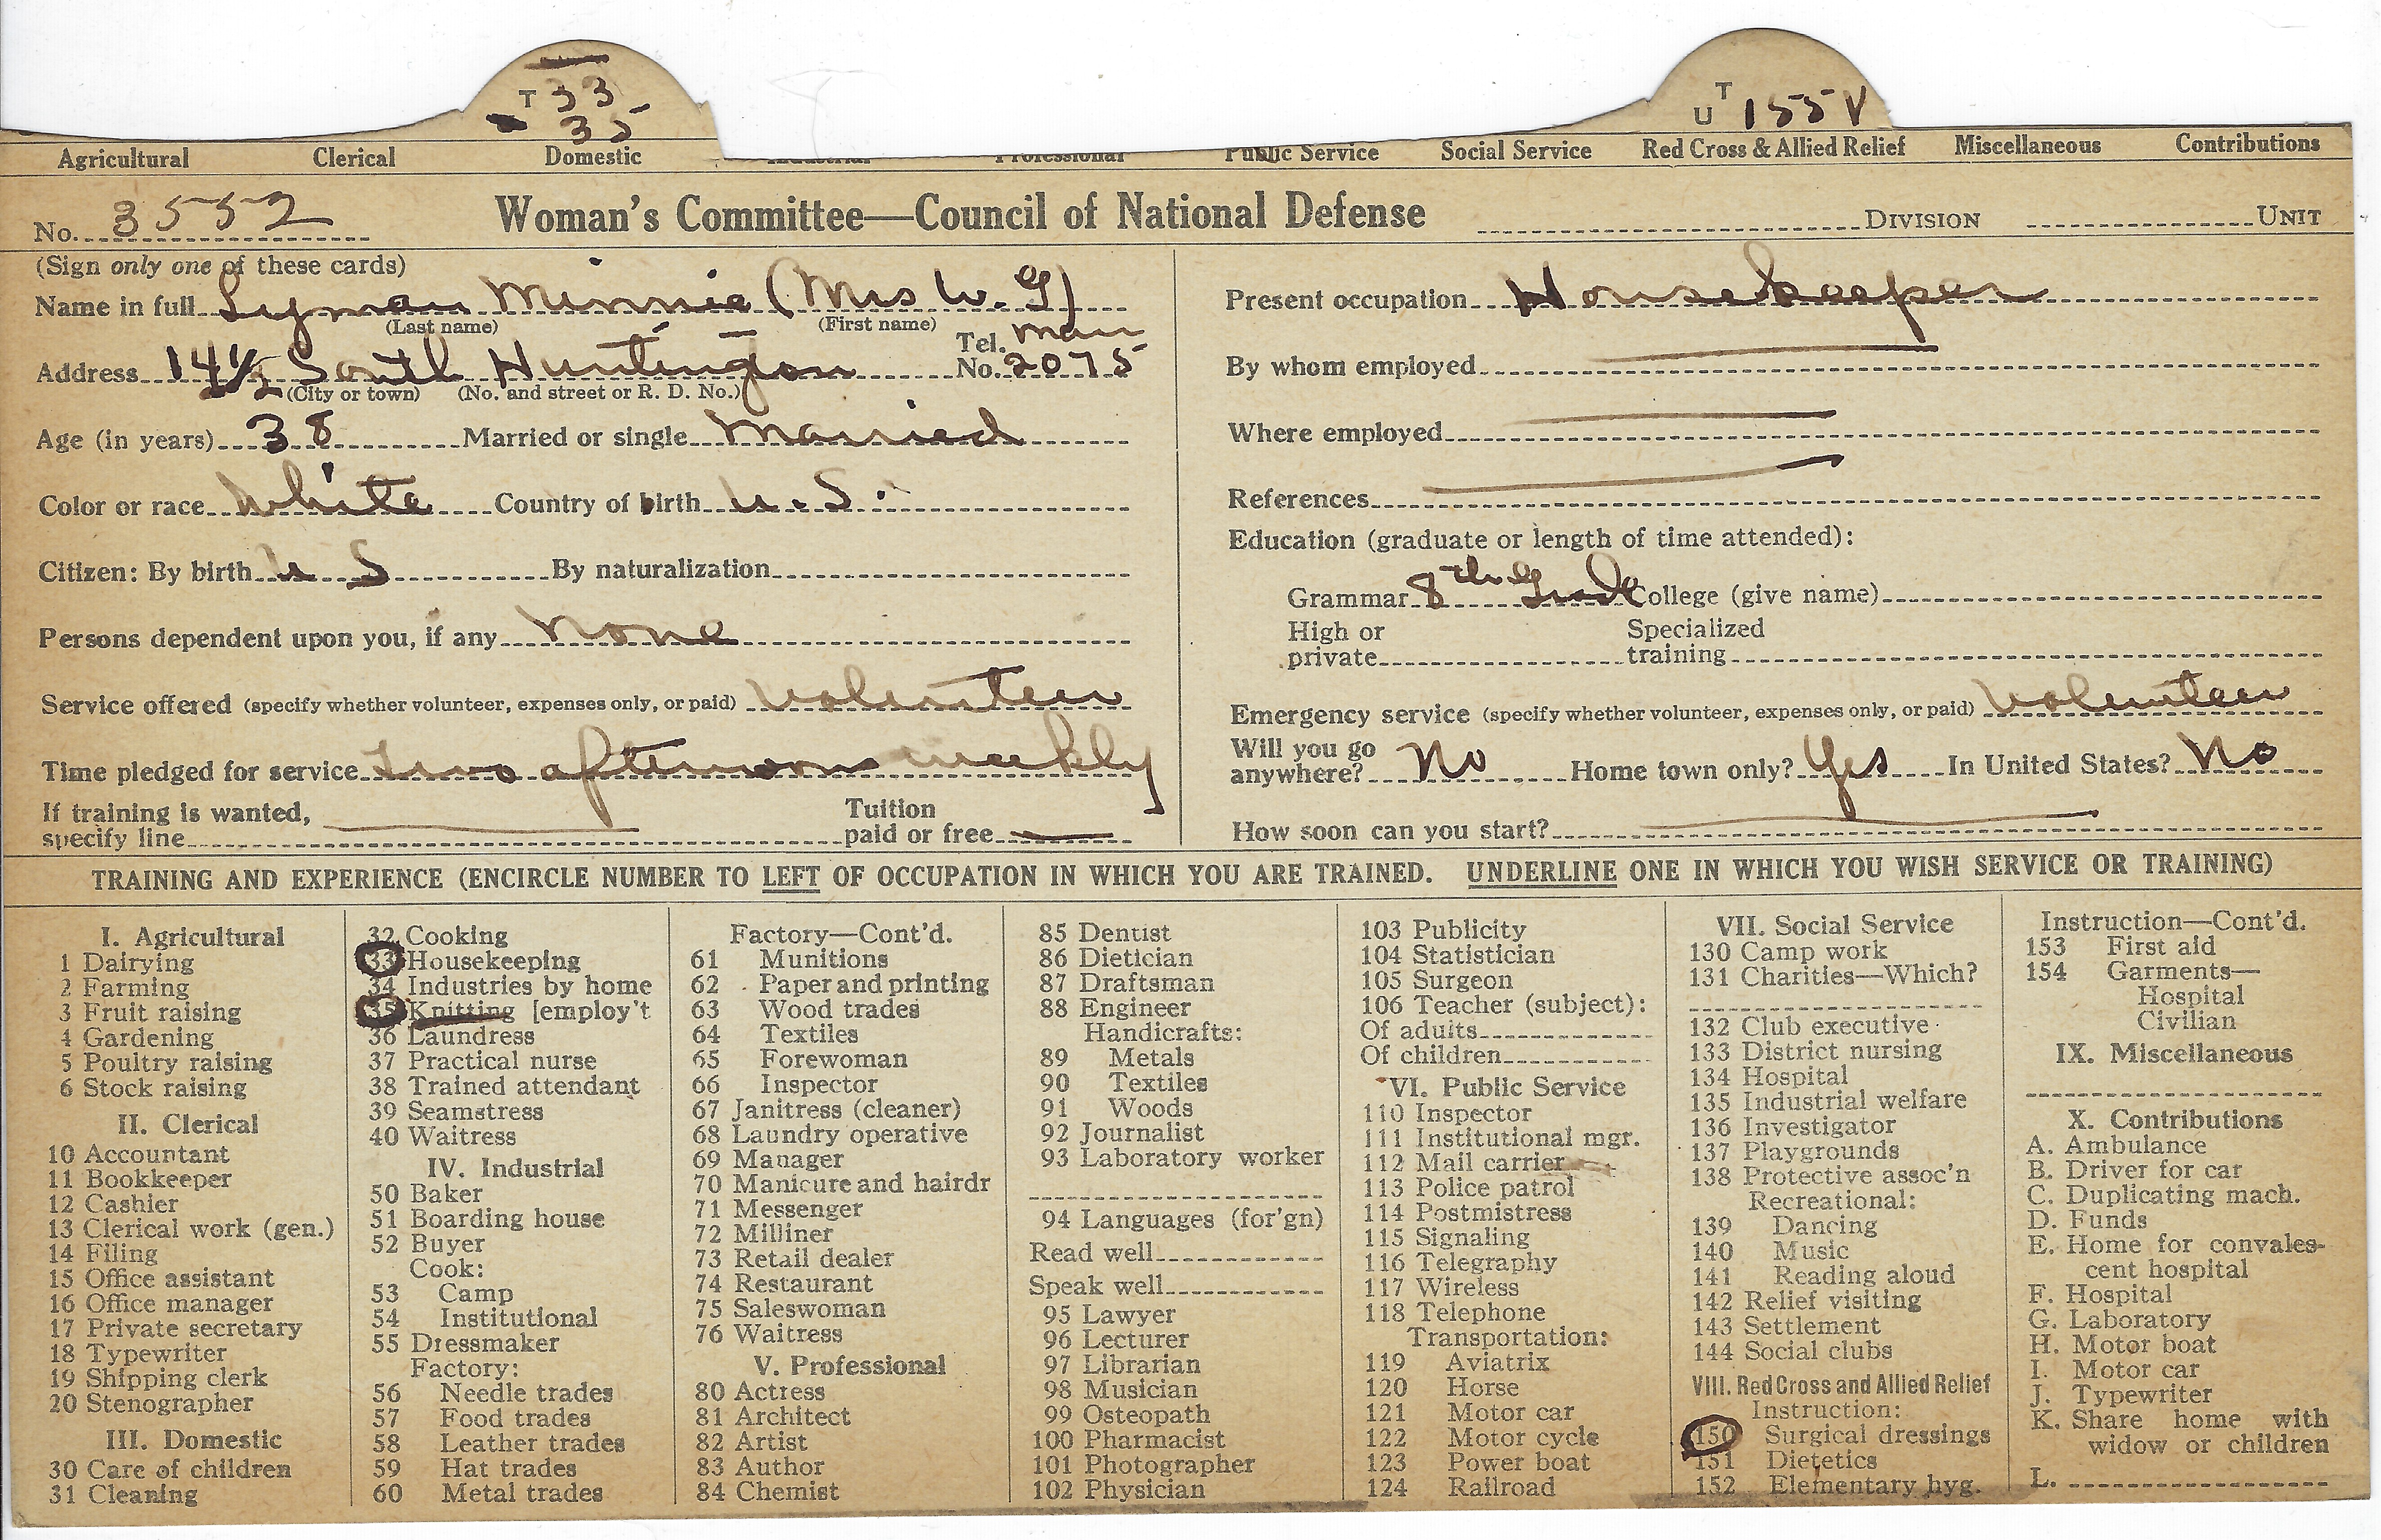 T 33
35
U T 155 V
Agricultural Clerical Domestic Industrial Professional Public Service Social Service Red Cross & Allied Relief Miscellaneous Contributions
No. 3552 Woman's Committee—Council of National Defense DIVISION UNIT
(Sign only one of these cards)
Name in full Lyman Minnie (Mrs W. G)
(Last name) (First name)
Address 14½ South Huntington Tel. No. Main 2075
(City or town) (No. and street or R. D. No.)
Age (in years) 38 Married or single Married
Color or race White Country of birth U.S.
Citizen: By birth U S By naturalization
Persons dependent upon you, if any None
Service offered (specify whether volunteer, expenses only, or paid) Volunteer
Time pledged for service Two afternoons weekly
If training is wanted, specify line Tuition paid or free
Present occupation Housekeeper
By whom employed
Where employed
References
Education (graduate or length of time attended):
Grammar 8th Grade College (give name)
High or private Specialized training
Emergency service (specify whether volunteer, expenses only, or paid) Volunteer
Will you go anywhere? No Home town only? Yes In United States? No
How soon can you start?
TRAINING AND EXPERIENCE (ENCIRCLE NUMBER TO LEFT OF OCCUPATION IN WHICH YOU ARE TRAINED. UNDERLINE ONE IN WHICH YOU WISH SERVICE OR TRAINING)
I. Agricultural
1 Dairying
2 Farming
3 Fruit raising
4 Gardening
5 Poultry raising
6 Stock raising
II. Clerical
10 Accountant
11 Bookkeeper
12 Cashier
13 Clerical work (gen.)
14 Filing
15 Office assistant
16 Office manager
17 Private secretary
18 Typewriter
19 Shipping clerk
20 Stenographer
III. Domestic
30 Care of children
31 Cleaning
32 Cooking
33 Housekeeping
34 Industries by home
35 Knitting [employ't
36 Laundress
37 Practical nurse
38 Trained attendant
39 Seamstress
40 Waitress
IV. Industrial
50 Baker
51 Boarding house
52 Buyer
Cook:
53 Camp
54 Institutional
55 Dressmaker
Factory:
56 Needle trades
57 Food trades
58 Leather trades
59 Hat trades
60 Metal trades
Factory—Cont'd.
61 Munitions
62 Paper and printing
63 Wood trades
64 Textiles
65 Forewoman
66 Inspector
67 Janitress (cleaner)
68 Laundry operative
69 Manager
70 Manicure and hairdr
71 Messenger
72 Milliner
73 Retail dealer
74 Restaurant
75 Saleswoman
76 Waitress
V. Professional
80 Actress
81 Architect
82 Artist
83 Author
84 Chemist
85 Dentist
86 Dietician
87 Draftsman
88 Engineer
Handicrafts:
89 Metals
90 Textiles
91 Woods
92 Journalist
93 Laboratory worker
94 Languages (for'gn)
Read well
Speak well
95 Lawyer
96 Lecturer
97 Librarian
98 Musician
99 Osteopath
100 Pharmacist
101 Photographer
102 Physician
103 Publicity
104 Statistician
105 Surgeon
106 Teacher (subject):
Of adults
Of children
VI. Public Service
110 Inspector
111 Institutional mgr.
112 Mail carrier
113 Police patrol
114 Postmistress
115 Signaling
116 Telegraphy
117 Wireless
118 Telephone
Transportation:
119 Aviatrix
120 Horse
121 Motor car
122 Motor cycle
123 Power boat
124 Railroad
VII. Social Service
130 Camp work
131 Charities—Which?
132 Club executive
133 District nursing
134 Hospital
135 Industrial welfare
136 Investigator
137 Playgrounds
138 Protective assoc'n
Recreational:
139 Dancing
140 Music
141 Reading aloud
142 Relief visiting
143 Settlement
144 Social clubs
VIII. Red Cross and Allied Relief
Instruction:
150 Surgical dressings
151 Dietetics
152 Elementary hyg.
Instruction—Cont'd.
153 First aid
154 Garments—
Hospital
Civilian
IX. Miscellaneous
X. Contributions
A. Ambulance
B. Driver for car
C. Duplicating mach.
D. Funds
E. Home for convales-
cent hospital
F. Hospital
G. Laboratory
H. Motor boat
I. Motor car
J. Typewriter
K. Share home with
widow or children
L.